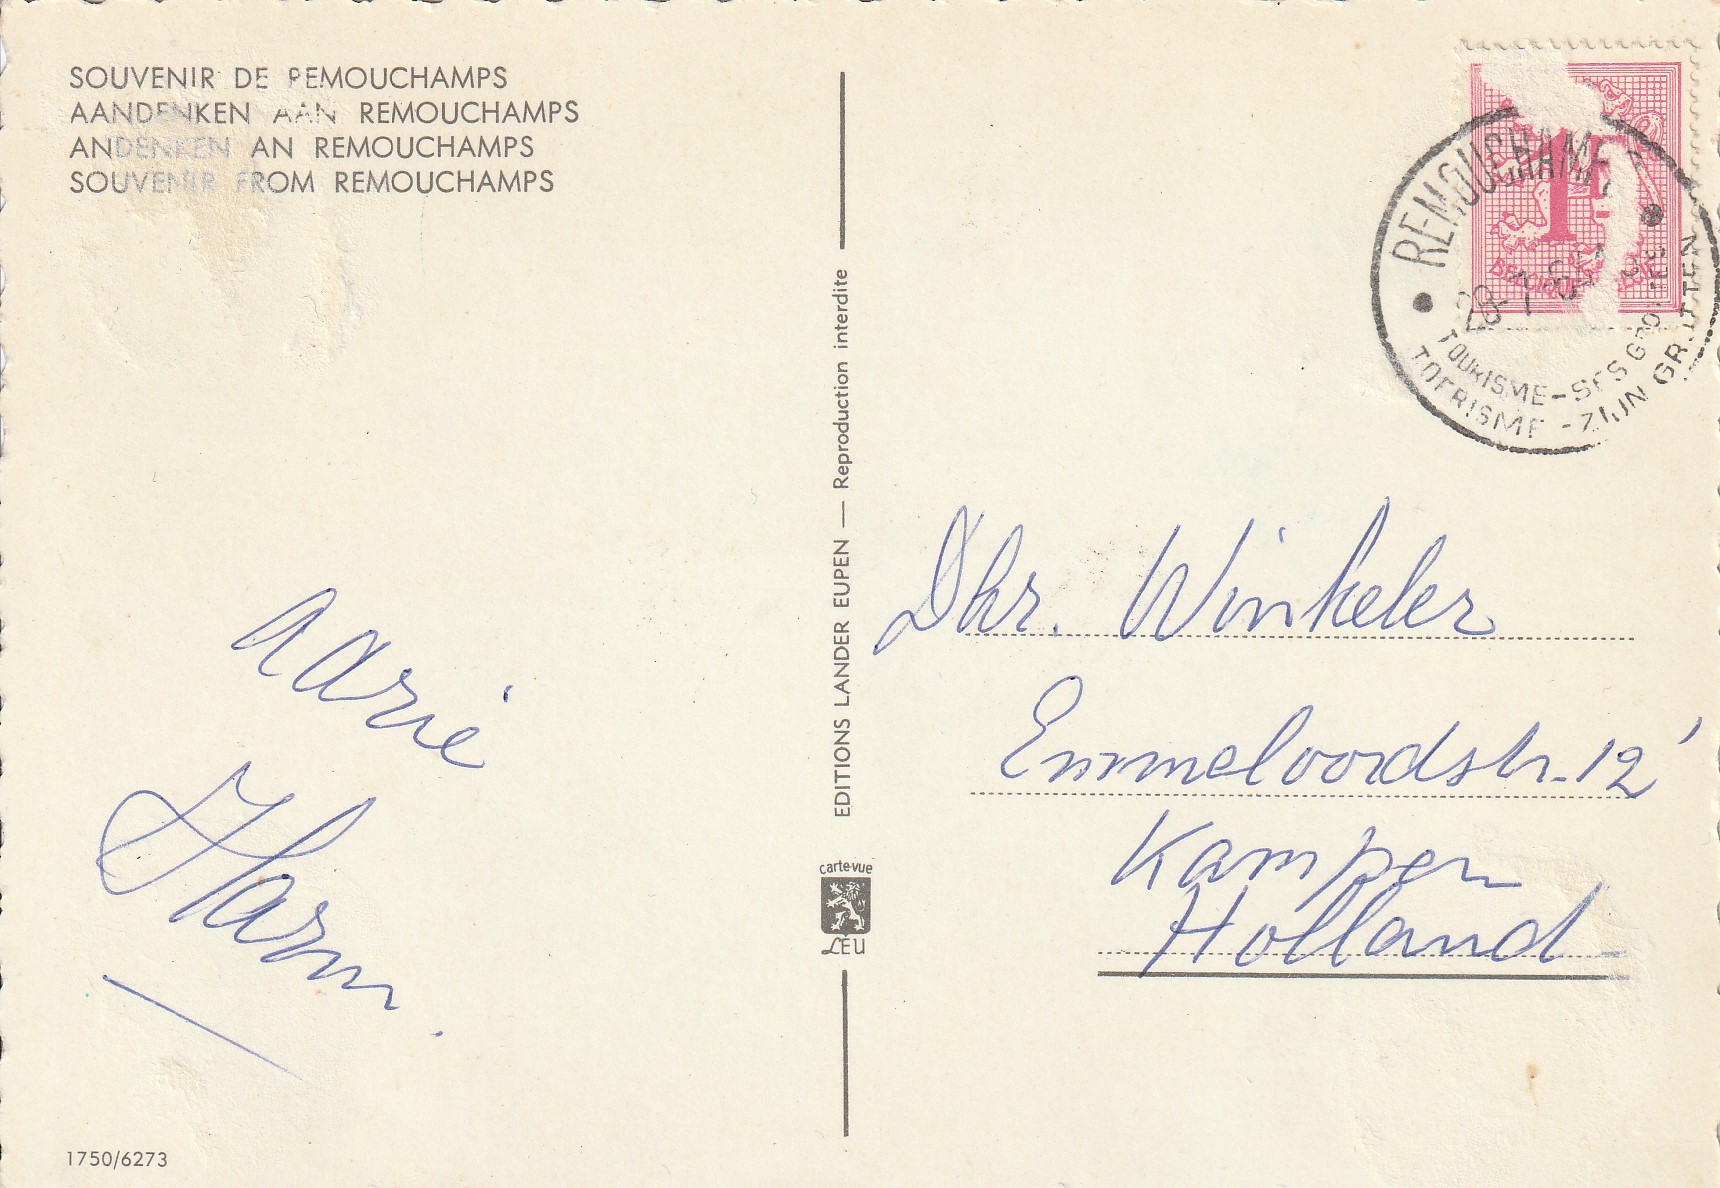 SOUVENIR DE REMOUCHAMPS
AANDENKEN AAN REMOUCHAMPS
ANDENKEN AN REMOUCHAMPS
SOUVENIR FROM REMOUCHAMPS
Aarie
Harm.
1750/6273
EDITIONS LANDER EUPEN — Reproduction interdite
carte-vue
LEU
1
BELGIQUE
REMOUCHAMPS
28-7
TOURISME - SES GROTTES
TOERISME - ZIJN GROTTEN
Dhr. Winkeler
Emmeloordstr. 12'
Kampen
Holland